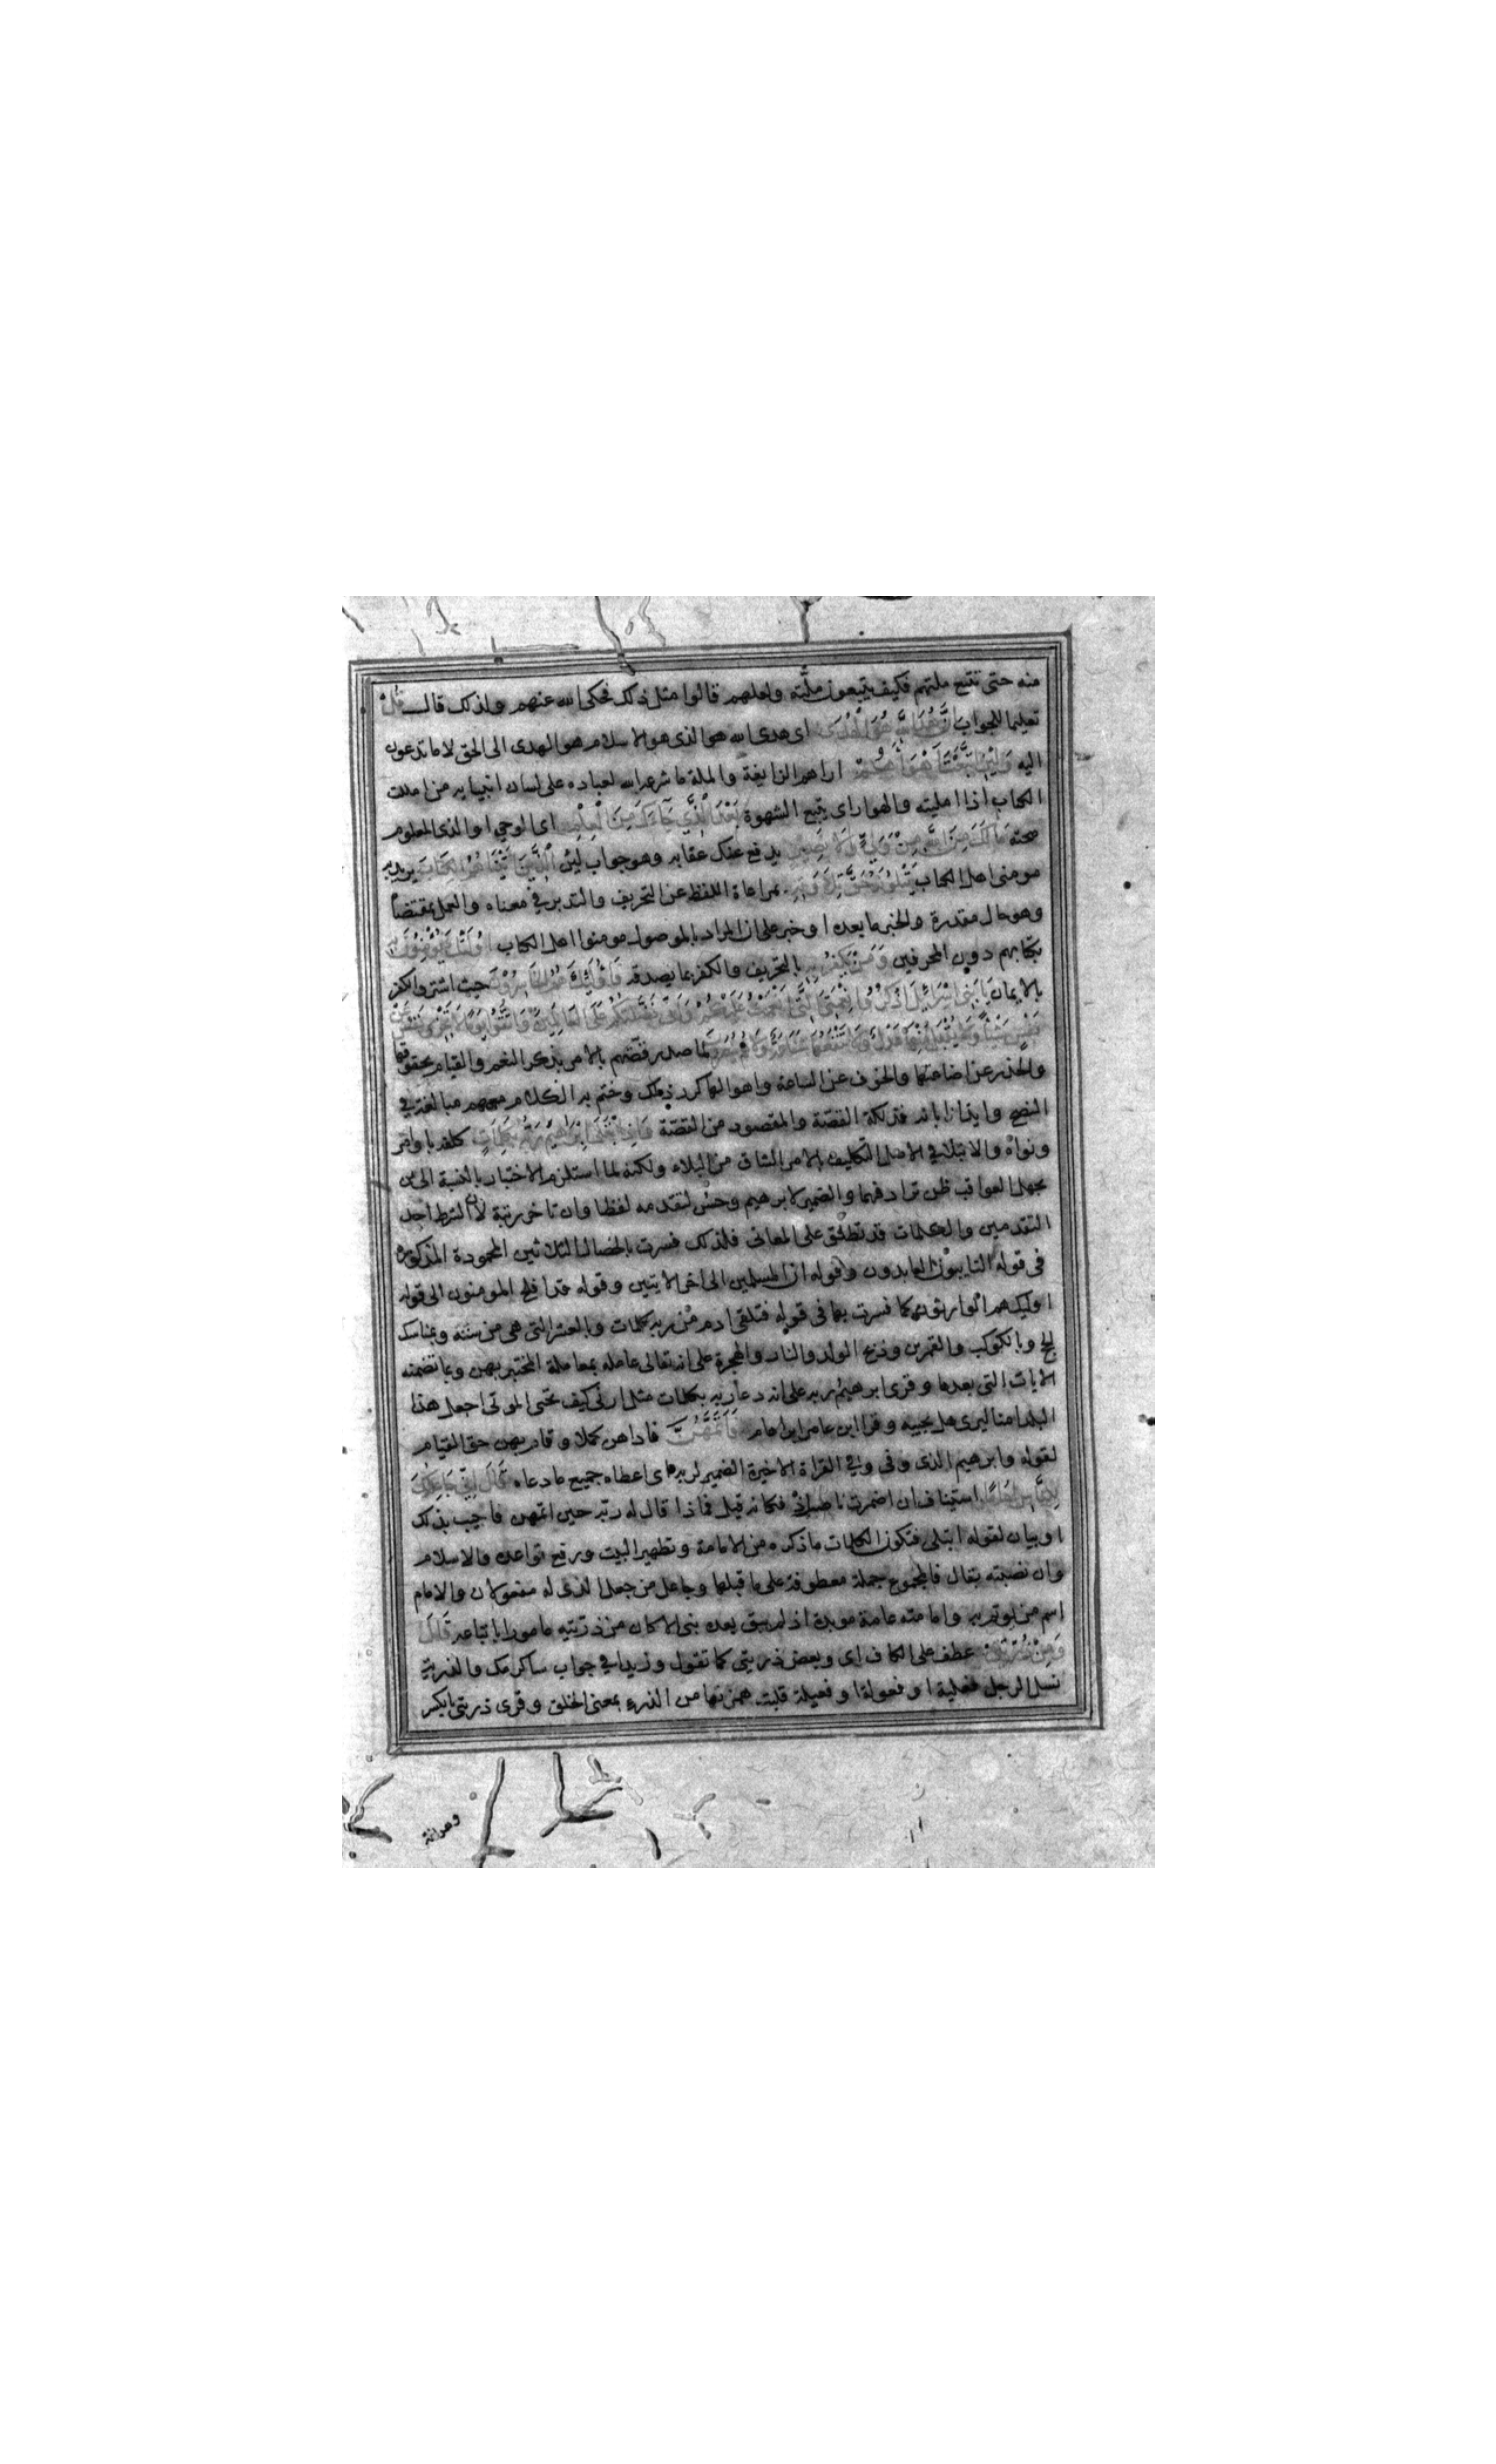 منه حتى تتبع ملتهم فكيف يتبعون ملته ولعلهم قالوا مثل ذلك فحكى الله عنهم ولذلك قال قل
تعليما للجواب ان هدى الله هو الهدى اى هدى الله هو الذى هو الاسلام هو الهدى الى الحق لا ما تدعون
اليه ولئن اتبعت اهواءهم اراهم الزايغة والملة ما شرعه الله لعباده على لسان انبيايه من امللت
الكتاب اذا امليته والهوا راى يتبع الشهوة بعد الذي جاءك من العلم اى الوحي او الذى المعلوم
صحته مالك من الله من ولي ولا نصير يدفع عنك عقابه وهو جواب لئن الذين اتيناهم الكتاب يريد به
مومنى اهل الكتاب يتلونه حق تلاوته بمراعاة اللفظ عن التحريف والتدبر في معناه والعمل بمقتضاه
وهو حال مقدرة والخبر ما بعده او خبر على ان المراد بالموصول مومنوا اهل الكتاب اولئك يؤمنون به
بكتابهم دون المحرفين ومن يكفر به بالتحريف والكفر بما يصدقه فاولئك هم الخاسرون حيث اشتروا الكفر
بالايمان يا بني اسرائيل اذكروا نعمتي التي انعمت عليكم واني فضلتكم على العالمين واتقوا يوما لا تجزي نفس عن
نفس شيئا ولا يقبل منها عدل ولا تنفعها شفاعة ولا هم ينصرون لما صدر قصتهم بالامر بذكر النعم والقيام بحقوقها
والحذر عن اضاعتها والخوف عن الساعة واهوالها كرر ذلك وختم به الكلام معهم مبالغة في
النصح وايذانا بانه فذلكة القصة والمقصود من القصة واذ ابتلى ابراهيم ربه بكلمات كلفه باوامر
ونواه والابتلا في الاصل التكليف بالامر الشاق من البلاء ولكنه لما استلزم الاختبار بالنسبة الى من
يجهل العواقب ظن ترادفهما والضمير لابرهيم وحسن لتقدمه لفظا وان تاخر رتبة لان الشرط احد
التقدمين والكلمات قد تطلق على المعانى فلذلك فسرت بالخصال الثلاثين المحمودة المذكوره
فى قوله التايبون العابدون وقوله ان المسلمين الى اخر الايتين وقوله قد افلح المومنون الى قوله
اوليك هم الوارثون كما فسرت بها فى قوله فتلقى ادم من ربه كلمات وبالعشر التى هى من سننه وبمناسك
الحج وبالكوكب والقمرين وذبح الولد والنار والهجرة على انه تعالى عامله بمعاملة المختبر بهن وبما تضمنه
الايات التى بعدها وقرى ابرهيم ربه على انه دعا ربه بكلمات مثل ارنى كيف تحيى الموتى اجعل هذا
البلد امنا ليرى هل يجيبه وقرا ابن عامر ابراهام فاتمهن فاداهن كملا وقام بهن حق القيام
لقوله وابرهيم الذى وفى وفي القراة الاخيرة الضمير لربه اى اعطاه جميع ما دعاه قال اني جاعلك
للناس اماما استيناف ان اضمرت ناصب اذ فكانه قيل فماذا قال له ربه حين اتمهن فاجيب بذلك
او بيان لقوله ابتلى فتكون الكلمات ما ذكره من الامامة وتطهير البيت ورفع قواعده والاسلام
وان نصبته بقال فالمجموع جملة معطوفة على ما قبلها وجاعل من جعل الذى له مفعولان والامام
اسم من يوتم به وامامته عامة موبدة اذ لم يبق بعده نبى الا كان من ذريته مامورا باتباعه قال
ومن ذريتي عطف على الكاف اى وبعض ذريتى كما تقول وزيدا في جواب ساكرمك والذرية
نسل الرجل فعلية او فعولة او فعيلة قلبت همزتها من الذرء بمعنى الخلق وقرى ذريتى بالكسر